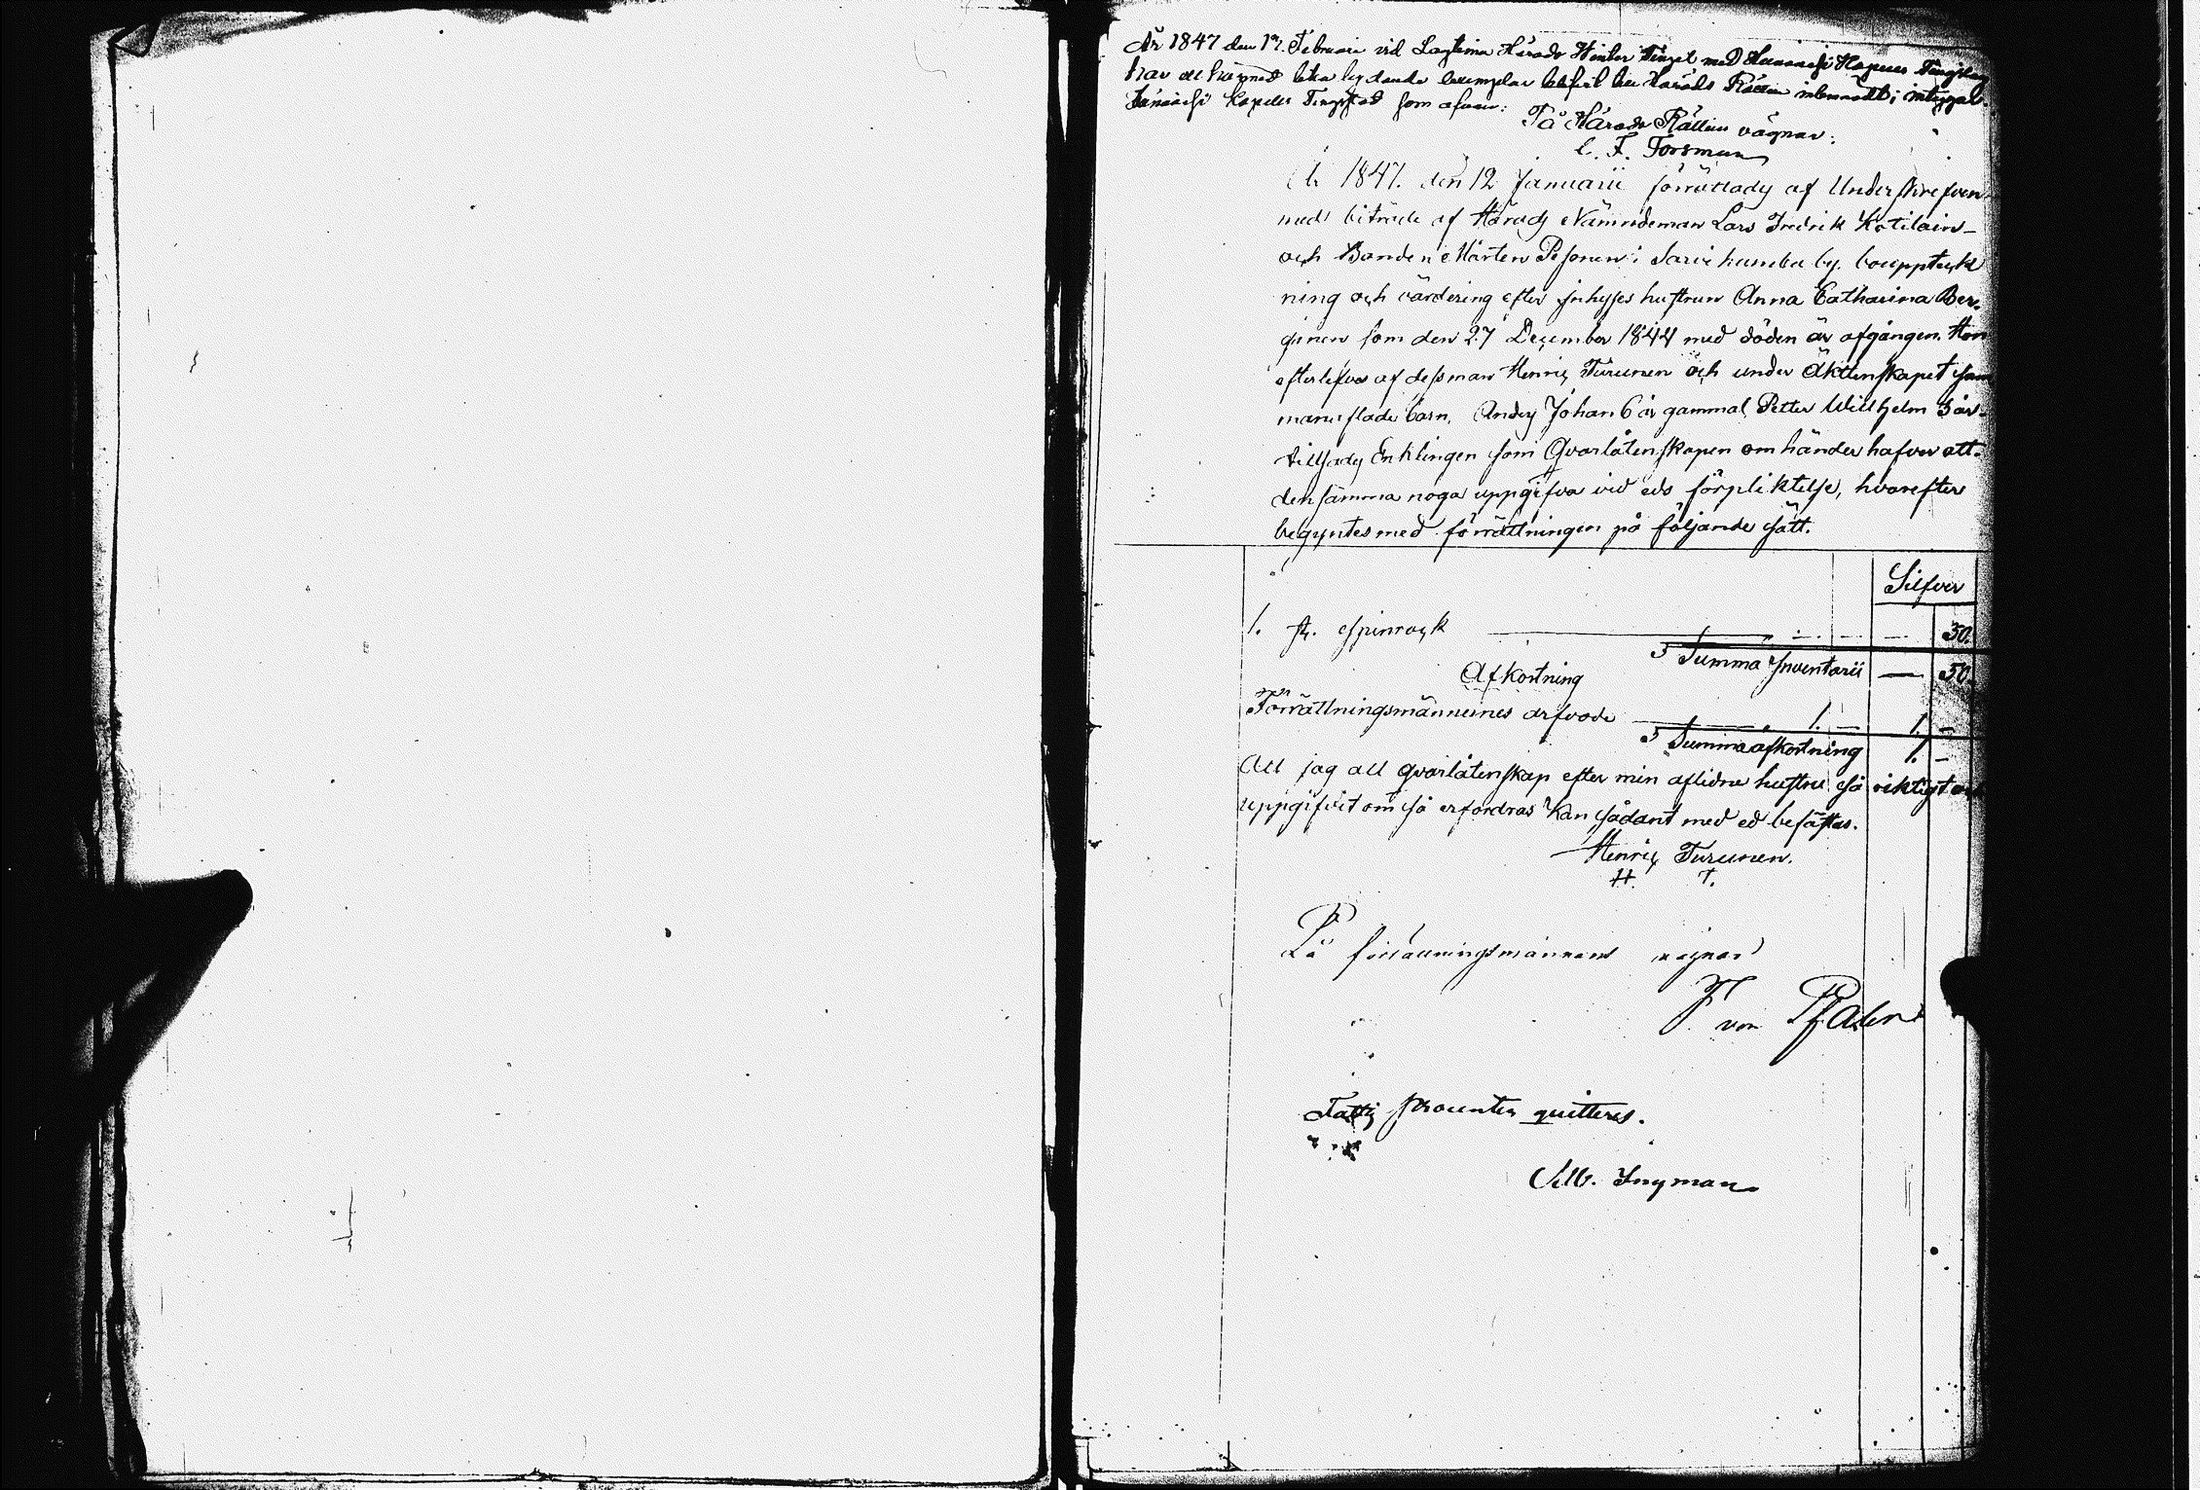 År 1847 den 17. Februari vid Lagtima Härads Winter Tinget med Kapells Tingslag
har lika lydande exemplar Härads Rätten
Kapells Tingstad som ofvan:
På Härads Rättens vägnar:
C. F. Forsman
År 1847. den 12 Januarii förrättady af Underskrefven
med biträde af Härady Nämndeman Lars Fredrik Kotilain-
och Bonden Mårten Pesonen i Sarikumbu by. bouppteck
ning och värdering efter Inhyses hustrun Anna Catharina Ber-
ginen som den 27 December 1844 med döden är afgången. Hon
efterlefves af dess man Henric Turunen och under Äktenskapet sam
manaflade barn, Anders Johan 6 år gammal, Petter Wilhelm 3 år-
tillsady Enklingen som Qvarlåtenskapen om händer hafver att-
densamma noga uppgifva vid eds förpliktelse, hvarefter
begyntes med förrättningen på följande sätt.
Silfver
1. st. spinrock 50.
Summa Inventarii — 50.
Afkortning
Förrättningsmännernes arfvode 1. — 1. —
Summa afkortning 1. —
Att jag all qvarlåtenskap efter min aflidna hustru så riktigt
uppgifvit om så erfordras kan sådant med ed befästas.
Henric Turunen.
H. T.
På förrättningsmännens vägnar
F von Pfaler
Fattig procenten quitteras.
Ingman